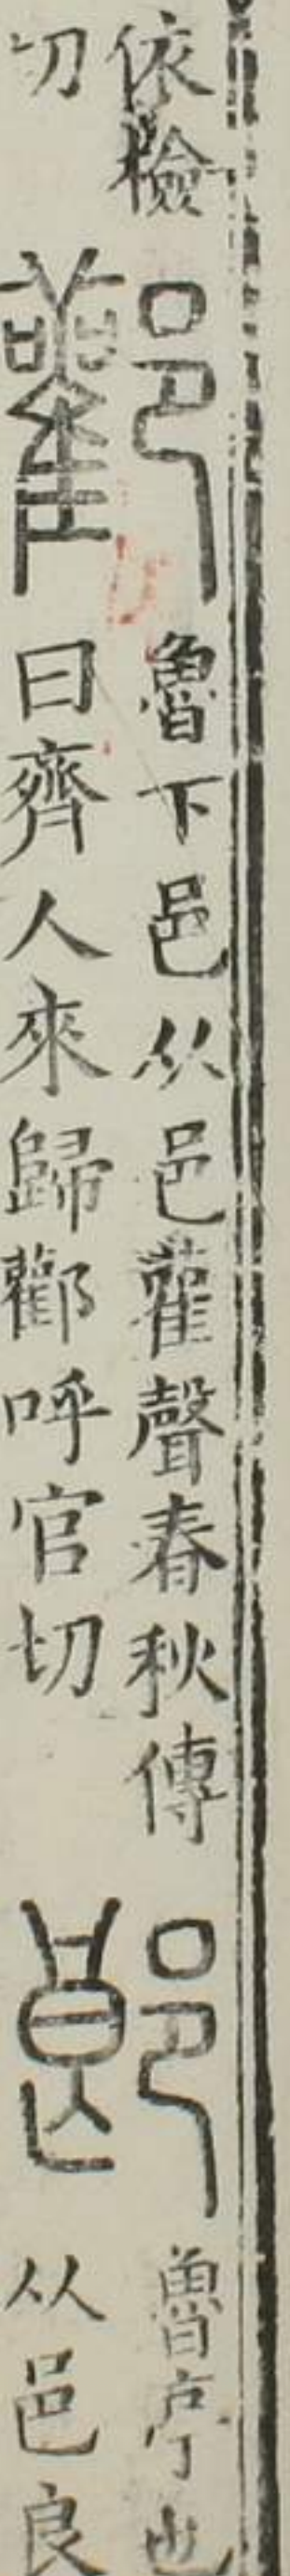 依檢
切
酄
魯下邑从邑雚聲春秋傳
曰齊人來歸酄呼官切
郎
魯亭也
从邑良